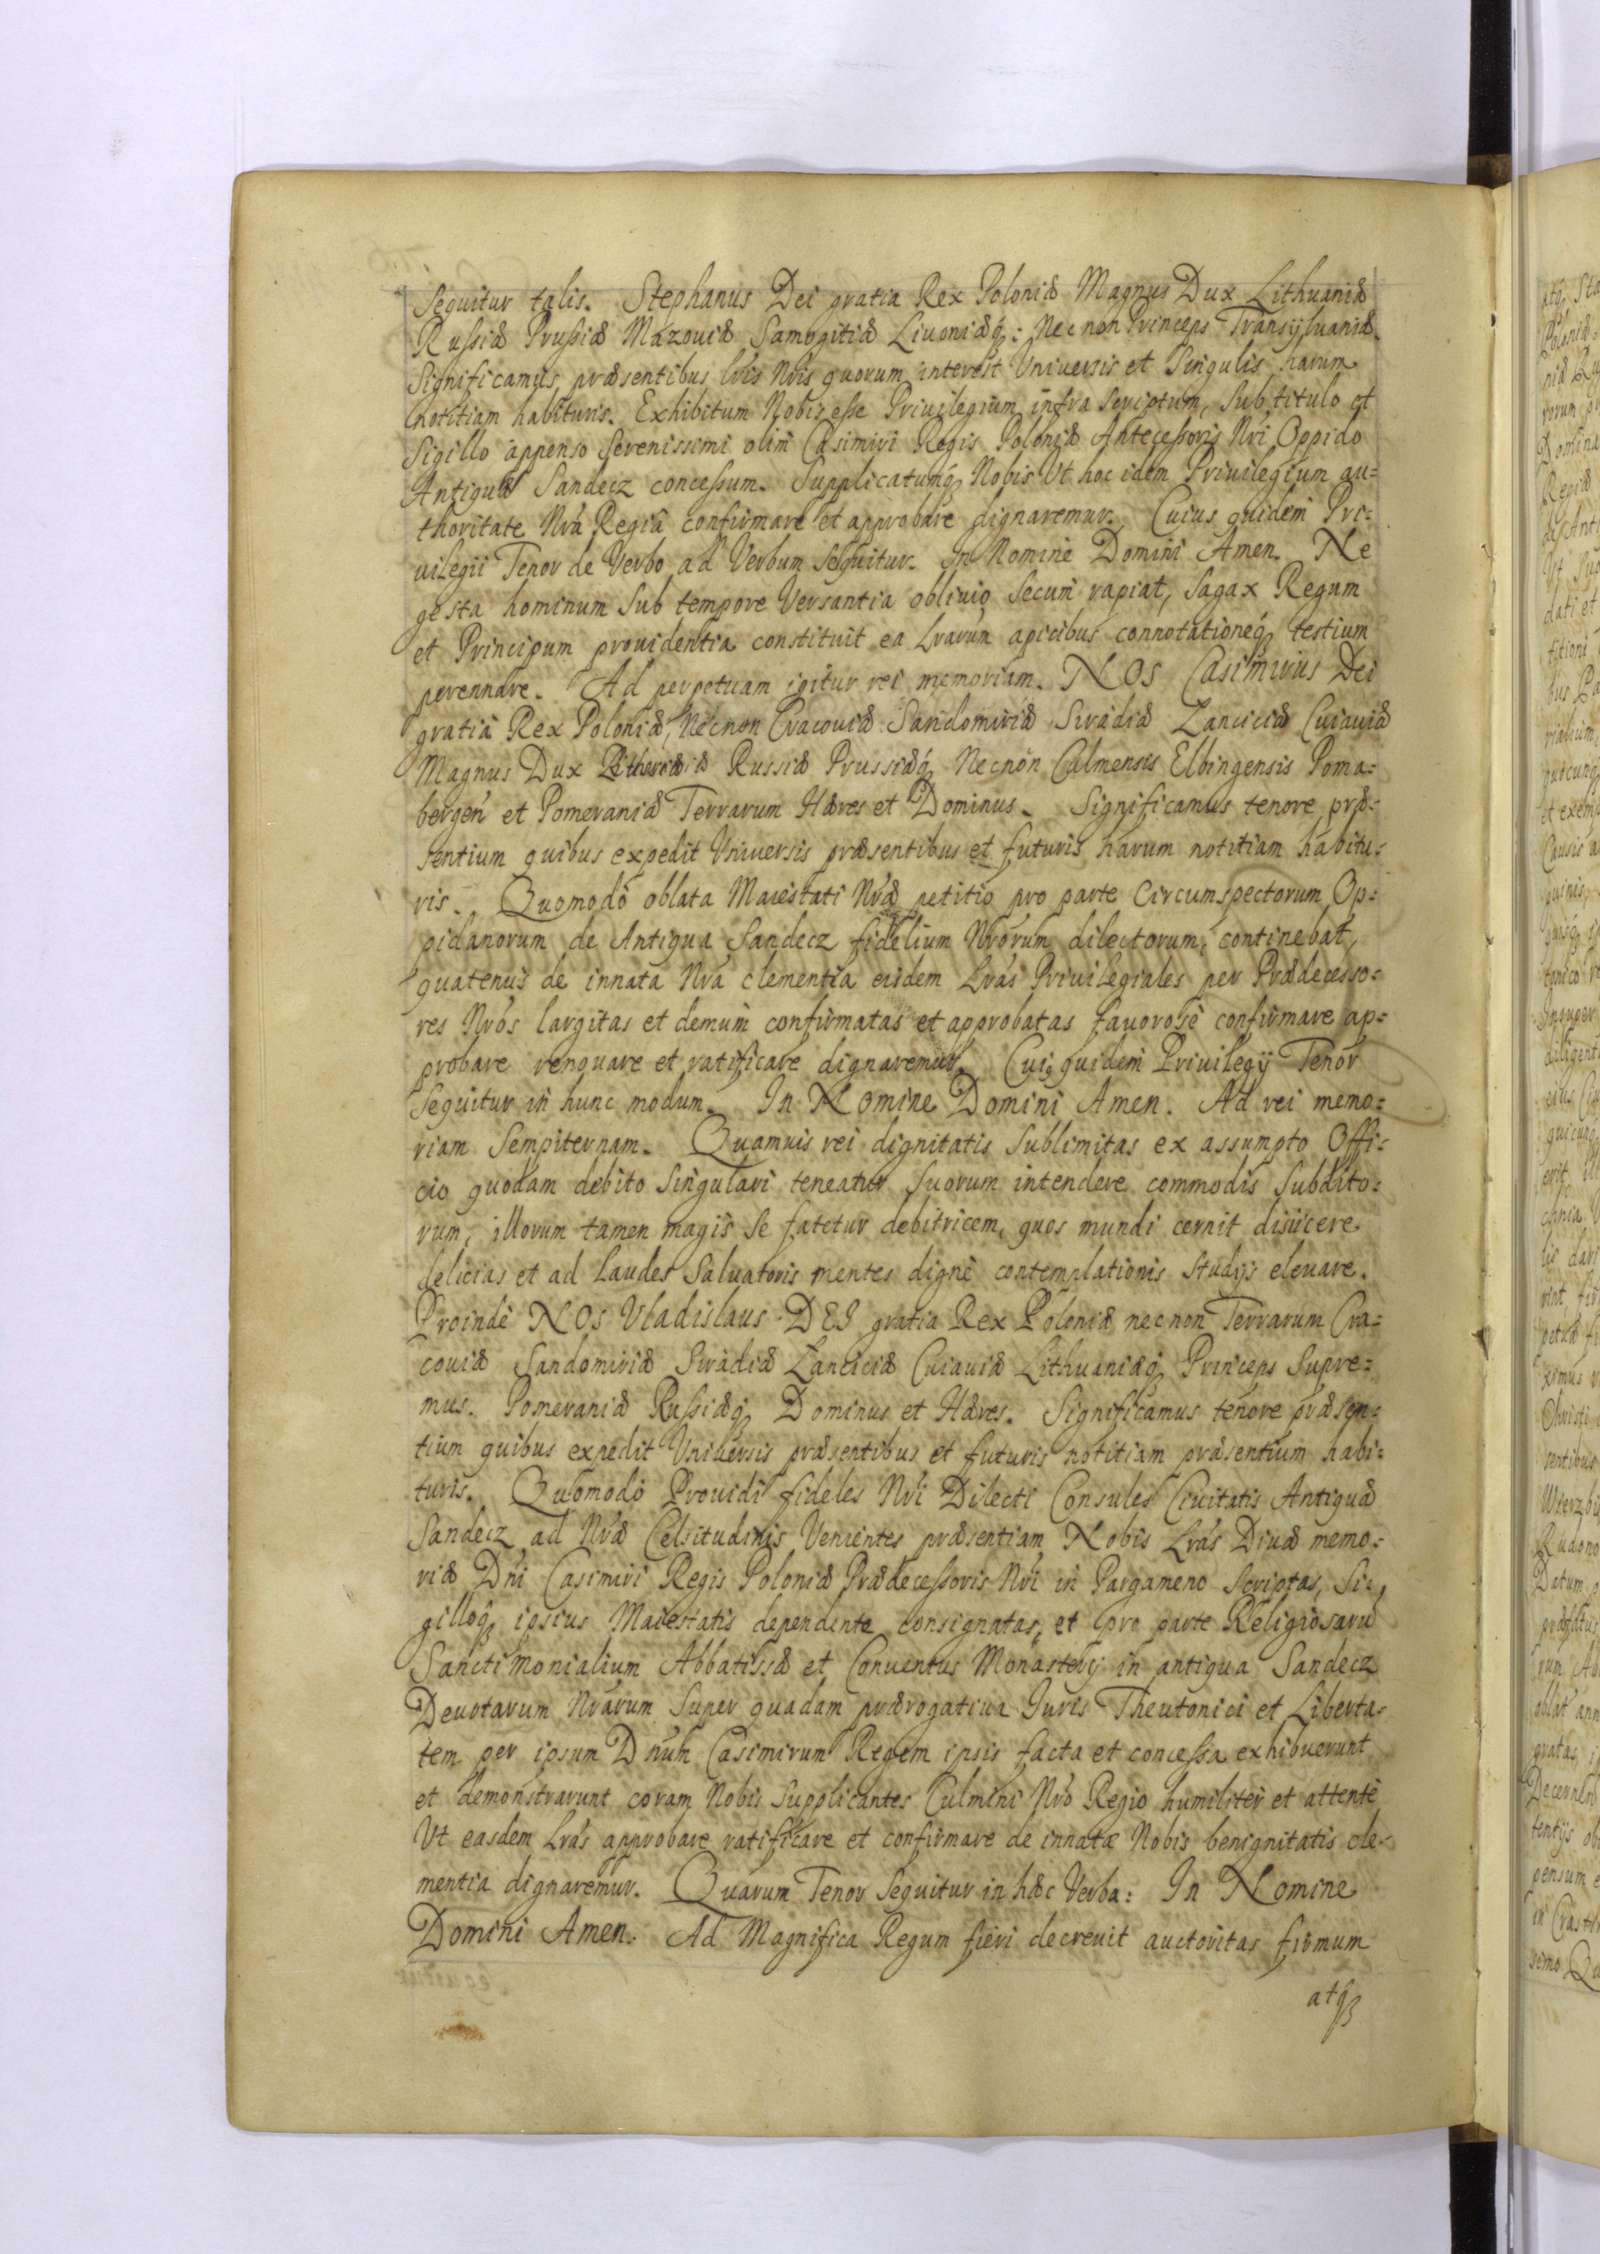 sequitur talis. Stephanus Dei gratia Rex Poloniæ Magnus Dux Lithuaniæ
Russiæ Prussiæ Mazouiæ Samogitiæ Liuoniæq;: Necnon Princeps Transyluaniæ.
Significamus præsentibus lris Nris quorum interest Vniuersis et Singulis harum
notitiam habituris. Exhibitum Nobis esse Priuilegium infra Scriptum, Sub titulo et
Sigillo appenso Serenissimi olim Casimiri Regis Poloniæ Antecessoris Nri Oppido
Antiquæ Sandecz concessum. Supplicatumq; Nobis Vt hoc idem Priuilegium au=
thoritate Nra Regiâ confirmare et approbare dignaremur. Cuius quidem Pri=
uilegii Tenor de Verbo ad Verbum sequitur. In Nomine Domini Amen. Ne
gesta hominum Sub tempore Versantia obliuio Secum rapiat, Sagax Regum
et Principum prouidentia constituit ea Lrarum apicibus connotationeq; testium
perennare. Ad perpetuam igitur rei memoriam. NOS Casimirus Dei
gratia Rex Poloniæ, Necnon Cracouiæ Sandomiriæ Siradiæ Lanciciæ Cuiauiæ
Magnus Dux Russiæ Prussiæq; Necnon Culmensis Elbingensis Poma=
bergen et Pomeraniæ Terrarum Hæres et Dominus. Significamus tenore præ=
sentium quibus expedit Vniuersis præsentibus et futuris harum notitiam habitu=
ris. Quomodo oblata Maiestati Nræ petitio pro parte Circumspectorum Op=
pidanorum de Antiqua Sandecz fidelium Nrorum dilectorum, continebat,
quatenus de innata Nra clementia eisdem Lras Priuilegiales per Prædecesso=
res Nros largitas et demum confirmatas et approbatas fauorose confirmare ap=
probare renouare et ratificare dignaremur. Cui9 quidem Priuilegij Tenor
Sequitur in hunc modum. In Nomine Domini Amen. Ad rei memo=
riam Sempiternam. Quamuis rei dignitatis Sublimitas ex assumpto Offi=
cio quodam debito Singulari teneatur Suorum intendere commodis Subdito=
rum, illorum tamen magis Se fatetur debitricem, quos mundi cernit disiicere
delicias et ad Laudes Saluatoris mentes digne contemplationis Studijs eleuare.
Proinde NOS Vladislaus DEI gratia Rex Poloniæ necnon Terrarum Cra=
couiæ Sandomiriæ Siradiæ Lanciciæ Cuiauiæ Lithuaniæq; Princeps Supre=
mus. Pomeraniæ Russiæq; Dominus et Hæres. Significamus tenore præsen=
tium quibus expedit Vniuersis præsentibus et futuris notitiam præsentium habi=
turis. Quomodo Prouidi fideles Nri Dilecti Consules Ciuitatis Antiquæ
Sandecz ad Nræ Celsitudinis Venientes præsentiam Nobis Lras Diuæ memo=
riæ Dni Casimiri Regis Poloniæ Prædecessoris Nri in Pargameno Scriptas, Si=
gilloq; ipsius Maiestatis dependente consignatas, et pro parte Religiosaru
Sanctimonialium Abbatissæ et Conuentus Monasterij in antiqua Sandecz
Deuotarum Nrarum Super quadam prærogatiua Iuris Theutonici et Liberta=
tem per ipsum Dnum Casimirum Regem ipsis facta et concessa exhibuerunt
et demonstrarunt coram Nobis Supplicantes Culmini Nro Regio humiliter et attente
Vt easdem Lras approbare ratificare et confirmare de innatæ Nobis benignitatis cle=
mentia dignaremur. Quarum Tenor Sequitur in hæc Verba: In Nomine
Domini Amen. Ad Magnifica Regum fieri decreuit auctoritas firmum
atq;